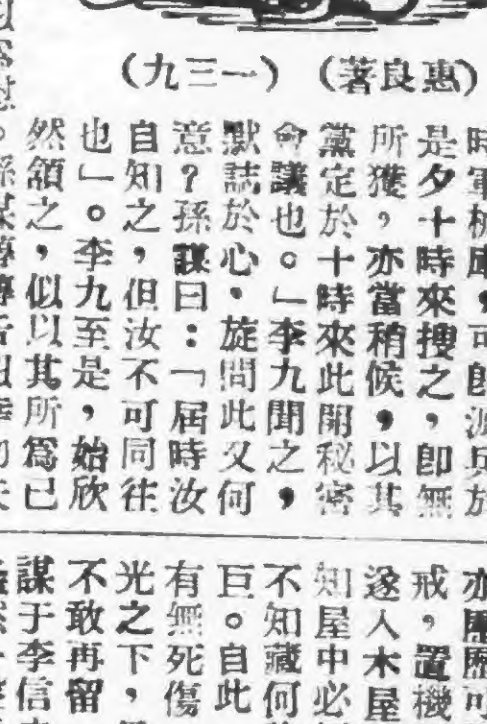 （惠良著）（一三九）
時軍械庫，可卽派兵於
是夕十時來搜之，卽無
所獲，亦當稍候，以其
黨定於十時來此開秘密
會議也。」李九聞之，
默誌於心。旋問此又何
意？孫謀曰：「屆時汝
自知之，但汝不可同往
也」。李九至是，始欣
然頷之，似以其所爲已
亦歷歷可
戒，置機
遂入木屋
知屋中必
不知藏何
巨。自此
有無死傷
光之下，
不敢再留
謀于李信